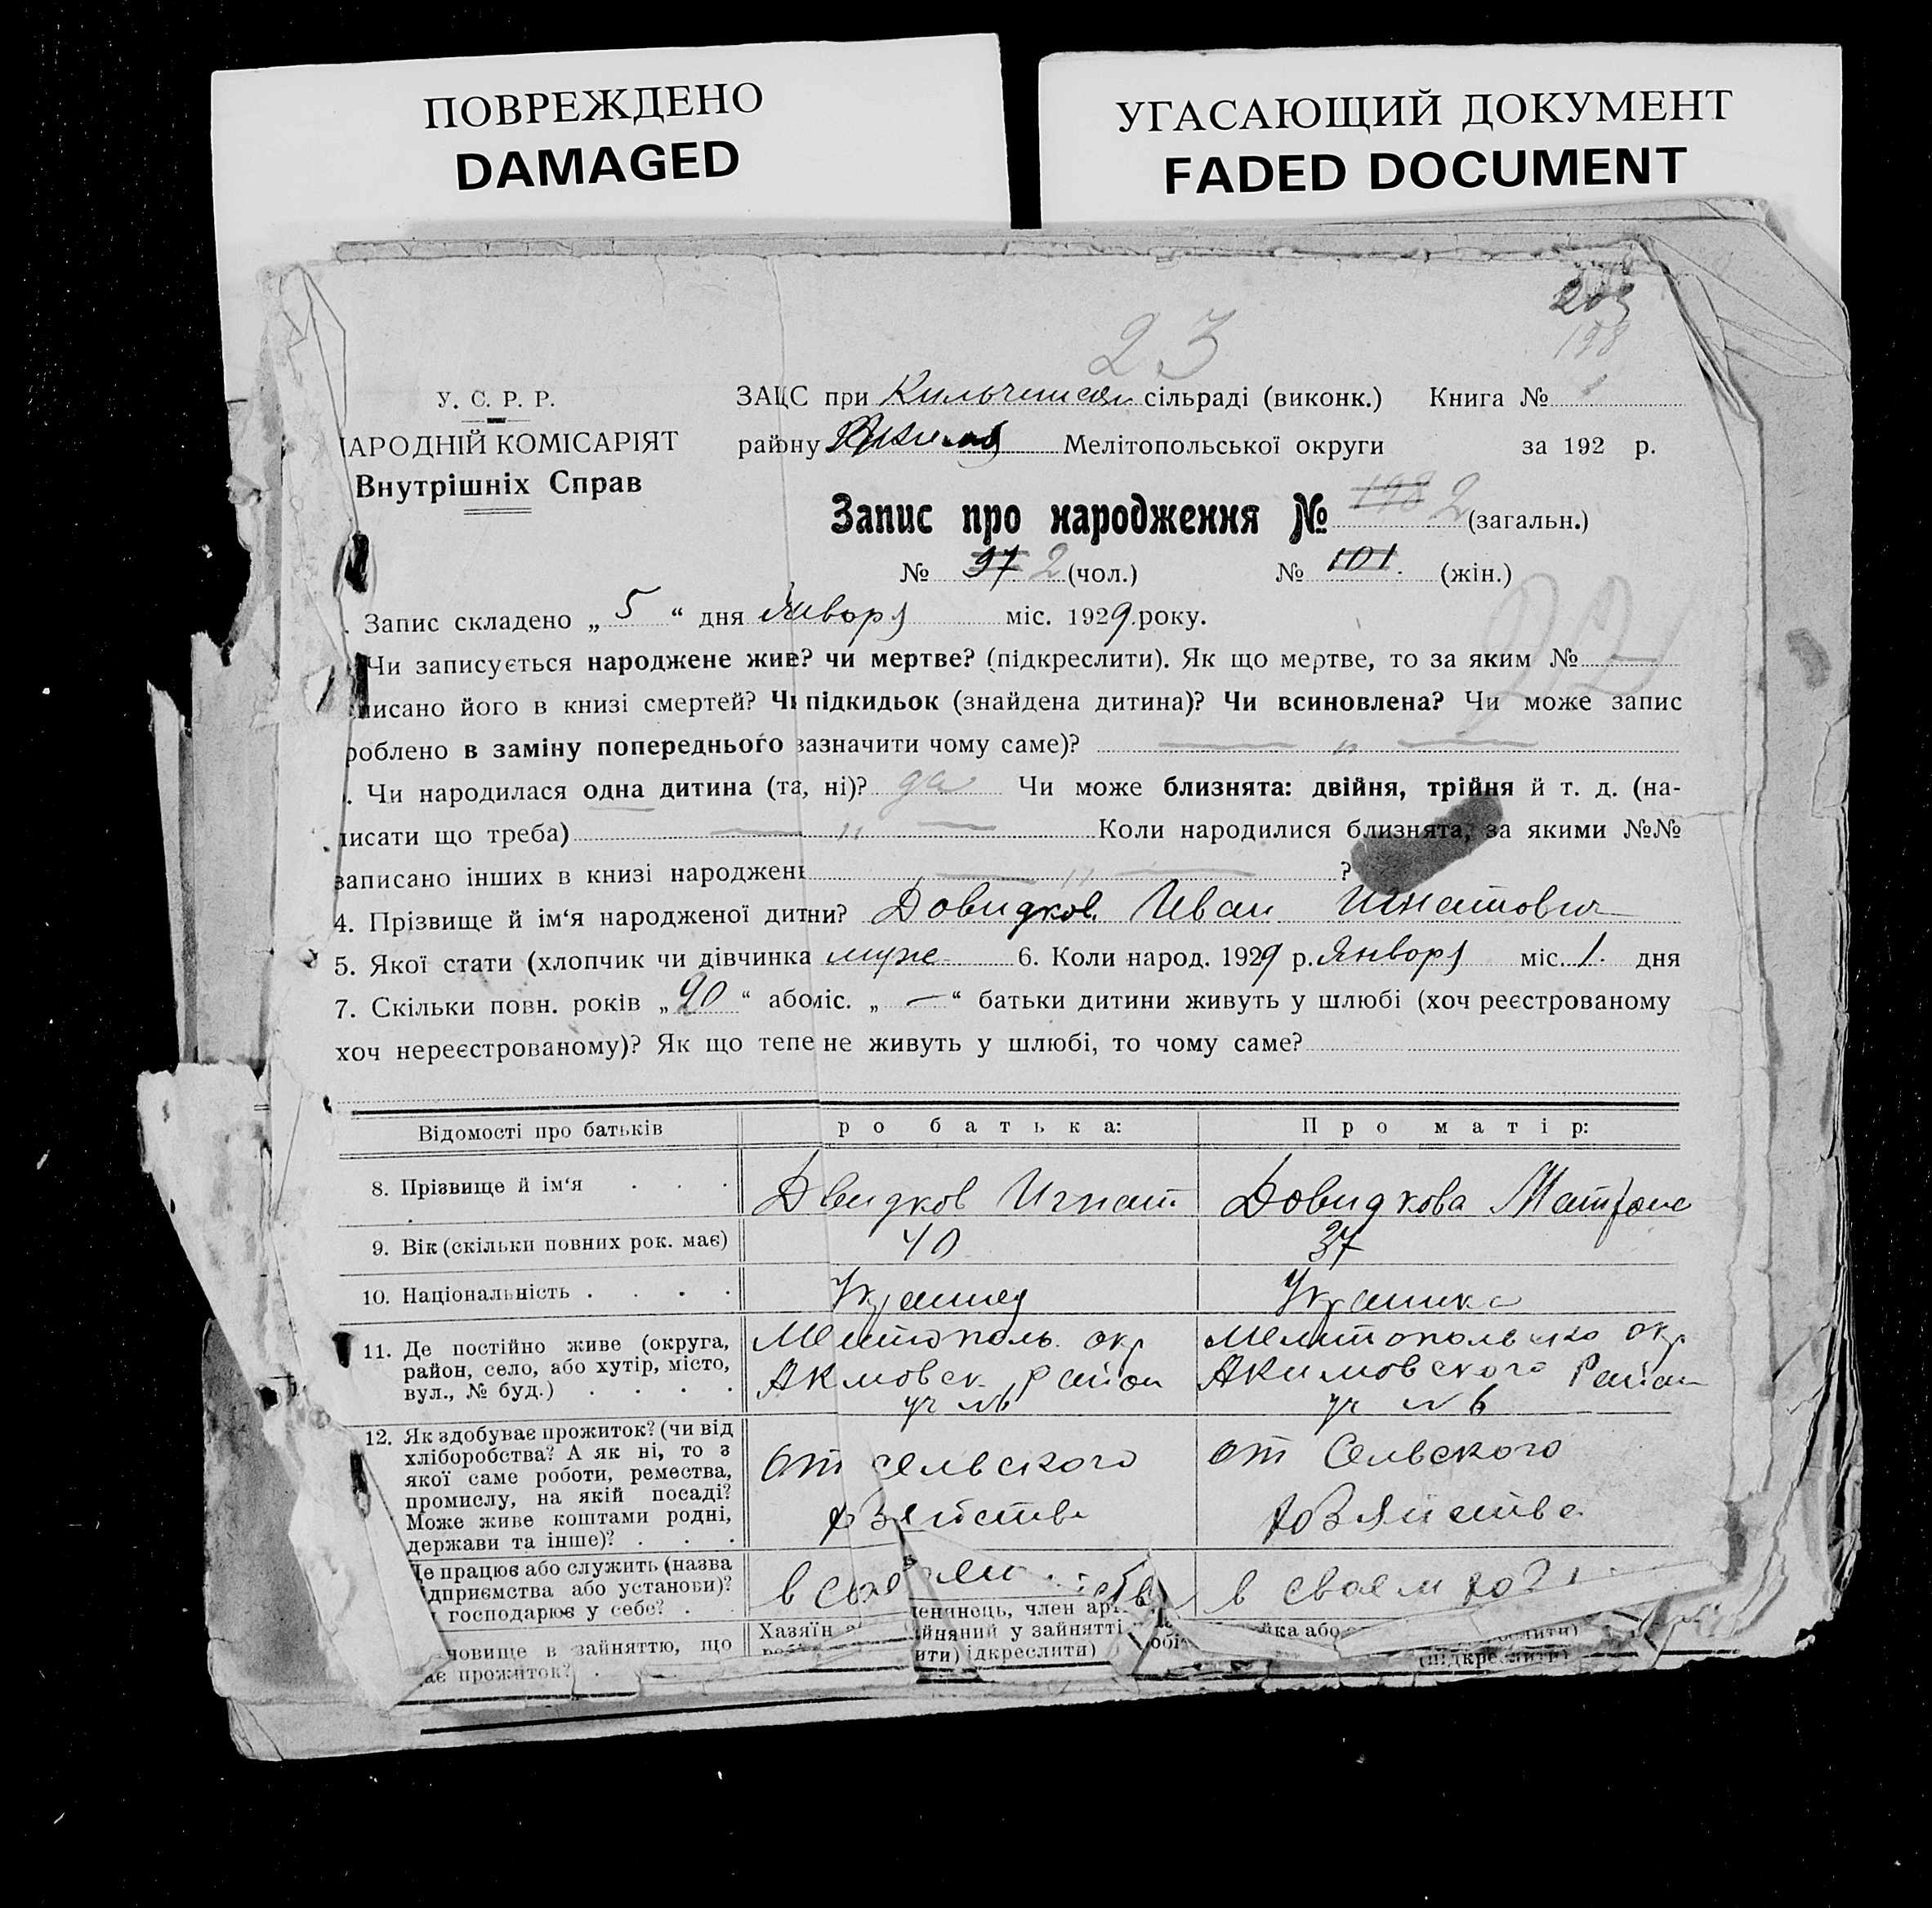 ПОВРЕЖДЕНО
DAMAGED
УГАСАЮЩИЙ ДОКУМЕНТ
FADED DOCUMENT
198
23
У. С. Р. Р.
АРОДНІЙ КОМІСАРІЯТ
Внутрішніх Справ
ЗАЦС при сільраді (виконк.) Книга №
району Мелітопольської округи за 192 р.
Запис про народження № 198 2 (загальн.)
№ 97 2 (чол.) № 101. (жін.)
. Запис складено „ 5 “ дня Январ міс. 1929 року.
Чи записується народжене живе? чи мертве? (підкреслити). Як що мертве, то за яким №
писано його в книзі смертей? Чи підкидьок (знайдена дитина)? Чи всиновлена? Чи може запис
роблено в заміну попереднього зазначити чому саме)? — „ —
. Чи народилася одна дитина (та, ні)? да Чи може близнята: двійня, трійня й т. д. (на-
писати що треба) — „ — Коли народилися близнята, за якими №№
записано інших в книзі народжень — „ — ?
22
4. Прізвище й ім‘я народженої дитини? Довидков Иван Игнатович
5. Якої стати (хлопчик чи дівчинка муж 6. Коли народ. 1929 р. Январ міс. 1. дня
7. Скільки повн. років „ 20 “ або міс. „ — “ батьки дитини живуть у шлюбі (хоч реєстрованому
хоч нереєстрованому)? Як що тепе не живуть у шлюбі, то чому саме?
Відомості про батьків
ро батька:
Про матір:
8. Прізвище й ім‘я . . .
Двидков Игнат
Довидкова Матрона
9. Вік (скільки повних рок. має)
40
37
10. Національність . . . .
Украинец
Украинка
11. Де постійно живе (округа,
район, село, або хутір, місто,
вул., № буд.) . . . .
Мелитополь. окр
Акмовск. район
уч №6
Мелитопольско окр
Акимовского Район
уч №6
12. Як здобуває прожиток? (чи від
хліборобства? А як ні, то з
якої саме роботи, ремества,
промислу, на якій посаді?
Може живе коштами родні,
держави та інше)? . . .
от сельского
хозяйства
от Сельского
хозяйства
Де працює або служить (назва
ідприємства або установи)?
господарює у себе? .
в сво
в своем хоз
новище в зайняттю, що
ає прожиток? .
Хазяїн
ленинець, член арт
айняний у зайнятті
ити) ідкреслити)
йка або
(підкреслити)